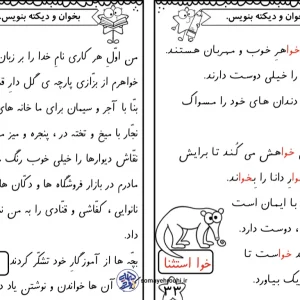 بخوان و دیکته بنویس.
خواهر خوب و مهربان هستند.
را خیلی دوست دارند.
دندان های خود را مسواک
خواهش می کُند تا برایش
دانا را بخواند.
با ایمان است
دوست دارد.
خواست تا
بیاورد.
خوا استثنا
۳۳
بخوان و دیکته بنویس.
من اوّل هر کاری نام خدا را بر زبان
خواهرم از بزّازی پارچه ی گل دار
بنّا با آجر و سیمان برای ما خانه های
نجّار با میخ و تخته در ، پنجره و میز
نقّاش دیوارها را خیلی خوب رنگ
مادرم در بازار فروشگاه ها و دکّان ها
نانوایی ، کفّاشی و قنّادی را به من
بچّه ها از آموزگار خود تشکّر کردند
آن ها خواندن و نوشتن یاد
somayehsobhi.ir